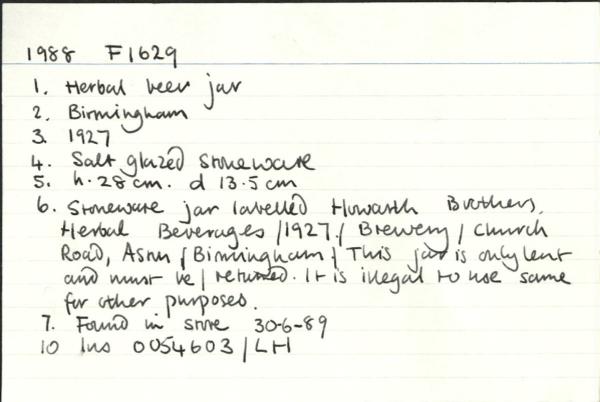 1988 F1629
1. Herbal beer jar
2. Birmingham
3. 1927
4. Salt glazed stoneware
5. h. 28cm. d 13.5cm
6. Stoneware jar labelled Howarth Brothers,
Herbal Beverages /1927/ Brewery / Church
Road, Aston / Birmingham / This jar is only lent
and must be / returned. It is illegal to use same
for other purposes.
7. Found in store 30-6-89
10 Ins 0054603/LH